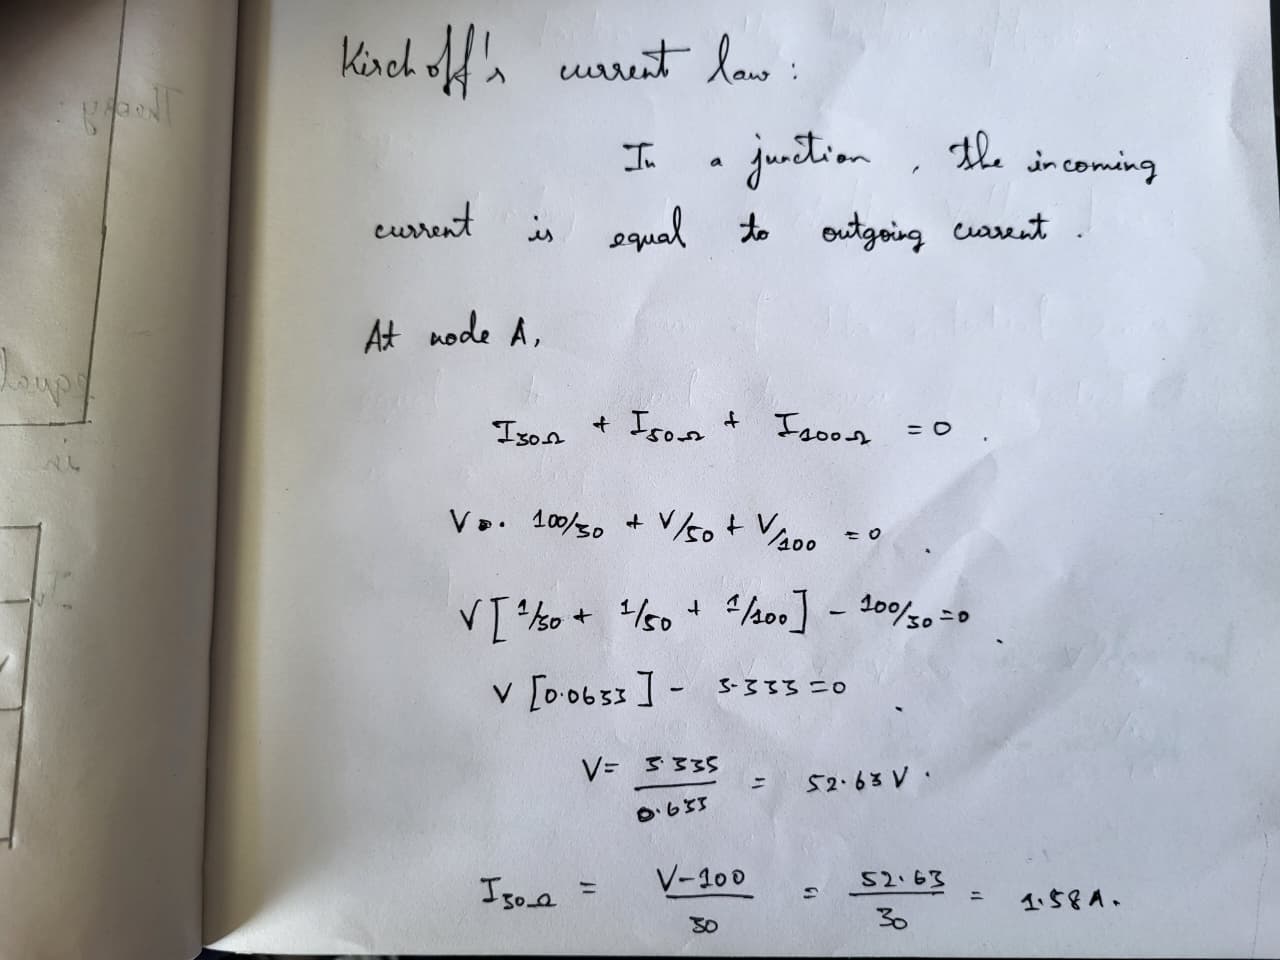 Kirchoff's current law :
In a junction , the incoming
current is equal to outgoing current .
At node A,
I30Ω + I50Ω + I100Ω = 0 .
V . 100/30 + V/50 + V/100 = 0 .
V [ 1/30 + 1/50 + 1/100 ] - 100/30 = 0 .
V [0.0633] - 3.333 = 0 .
V = 3.335 / 0.633 = 52.63 V .
I30Ω = V-100 / 30 = 52.63 / 30 = 1.58 A .
Theory :
equal
in